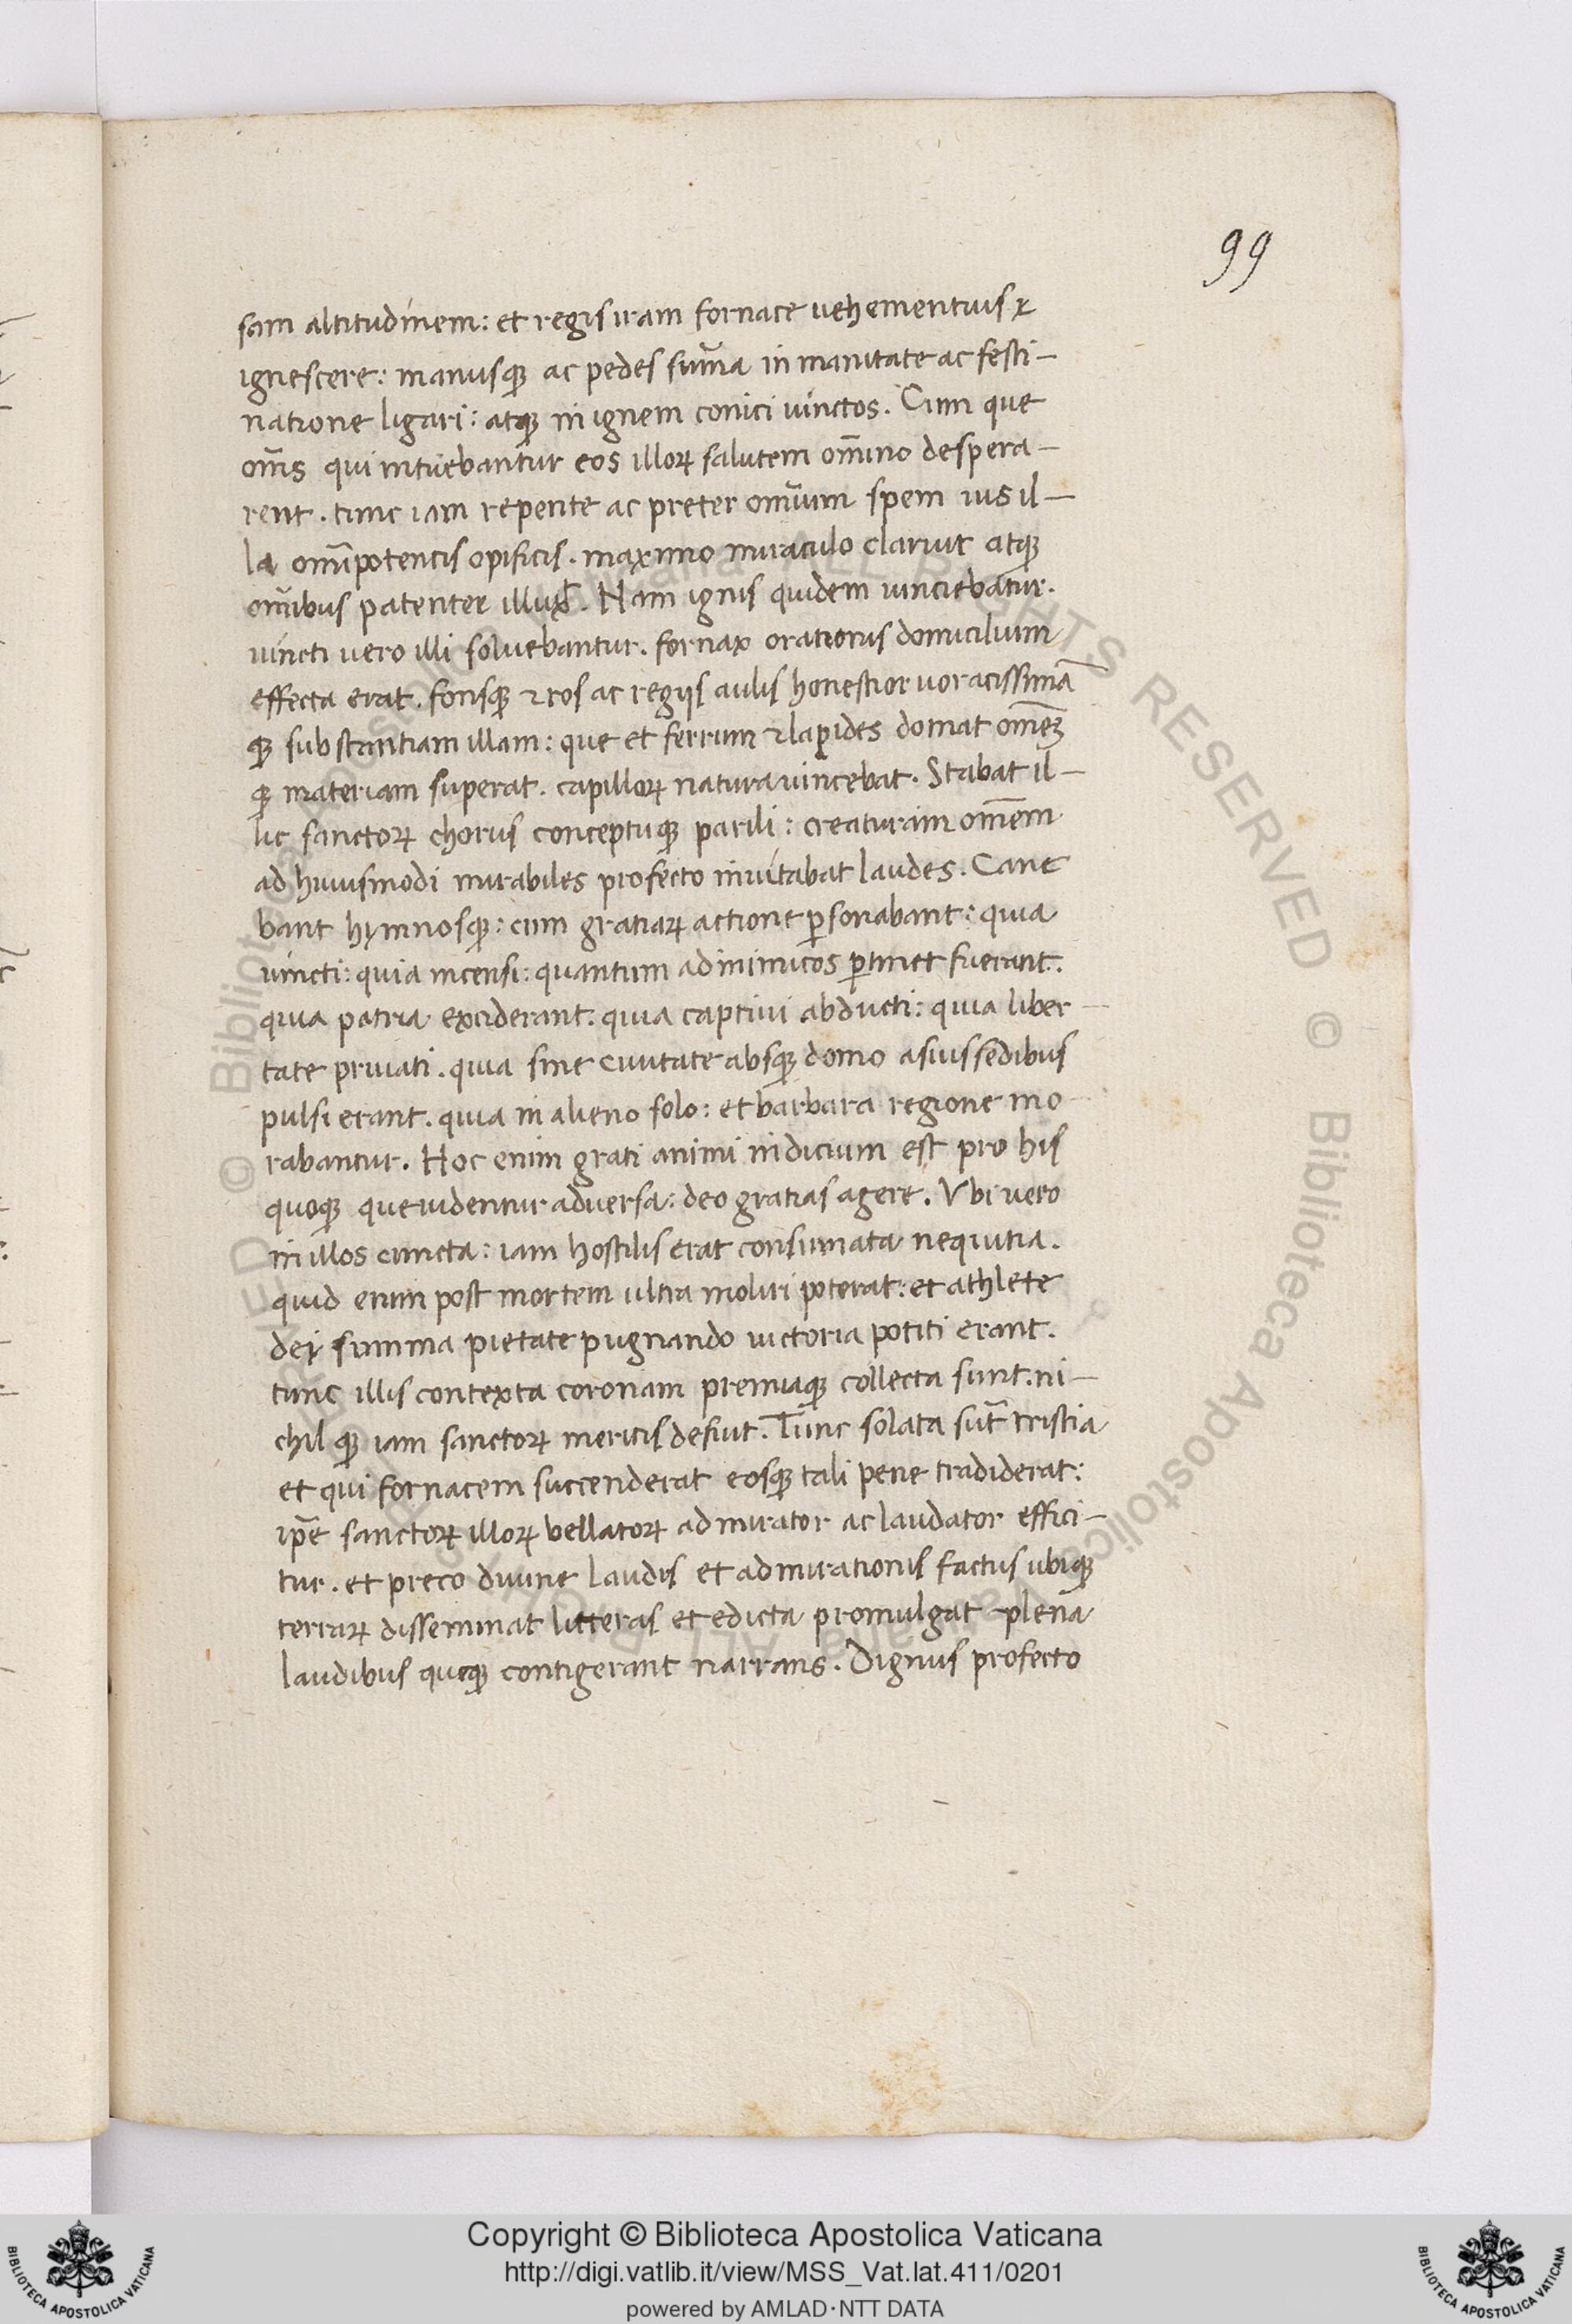 99
sam altitudinem: et regis iram fornace uehementius &
ignescere: manusqꝫ ac pedes sum̄a in manitate ac festi-
natione ligari: atqꝫ in ignem conici uinctos. Cum que
om̄s qui intuebantur eos illoꝝ salutem om̄ino despera-
rent. tunc iam repente ac preter om̄ium spem uis il-
la om̄ipotentis opificis. maximo miraculo claruit atqꝫ
om̄ibus patenter illux̄. Nam ignis quidem uinciebatur.
uincti uero illi soluebantur. fornax orationis domicilium
effecta erat. fonsqꝫ & ros ac regijs aulis honestior uoracissimā
qꝫ substantiam illam: que et ferrum & lapides domat om̄eꝫ
qꝫ materiam superat. capilloꝝ natura uincebat. Stabat il-
lic sanctoꝝ chorus conceptuqꝫ parili: creaturam om̄em
ad huiusmodi mirabiles profecto inuitabat laudes. Cane
bant hymnosqꝫ: cum gratiaꝝ actione ꝑsonabant: quia
uincti: quia incensi: quantum ad inimicos ꝑtinet fuerant.
quia patria exciderant. quia captiui abducti: quia liber-
tate priuati. quia sine ciuitate absqꝫ domo a suis sedibus
pulsi erant. quia in alieno solo: et barbara regione mo
rabantur. Hoc enim grati animi indicium est pro his
quoqꝫ que uidentur aduersa: deo gratias agere. Vbi uero
in illos cuncta: iam hostilis erat consumata nequitia.
quid enim post mortem ultra moliri poterat: et athlete
dei summa pietate pugnando uictoria potiti erant.
tunc illis contexta coronam premiaqꝫ collecta sunt. ni-
chil qꝫ iam sanctoꝝ meritis defuit. Tunc solata sūt tristia
et qui fornacem succenderat eosqꝫ tali pene tradiderat:
ip̄e sanctoꝝ illoꝝ bellatoꝝ admirator ac laudator effici-
tur. et preco diuine laudis et admirationis factus ubiqꝫ
terraꝝ disseminat litteras et edicta promulgat plena
laudibus quęqꝫ contigerant narrans. Dignus profecto
Copyright © Biblioteca Apostolica Vaticana
http://digi.vatlib.it/view/MSS_Vat.lat.411/0201
powered by AMLAD·NTT DATA